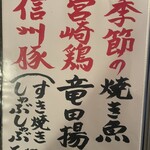 季節の焼き魚
宮崎鶏竜田揚
信州豚(すき焼き
しゃぶしゃぶ